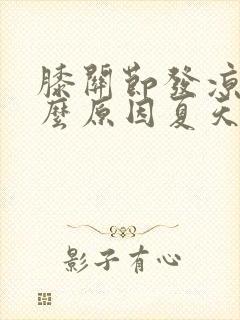 膝關節發涼
麼原因夏天
影子有心